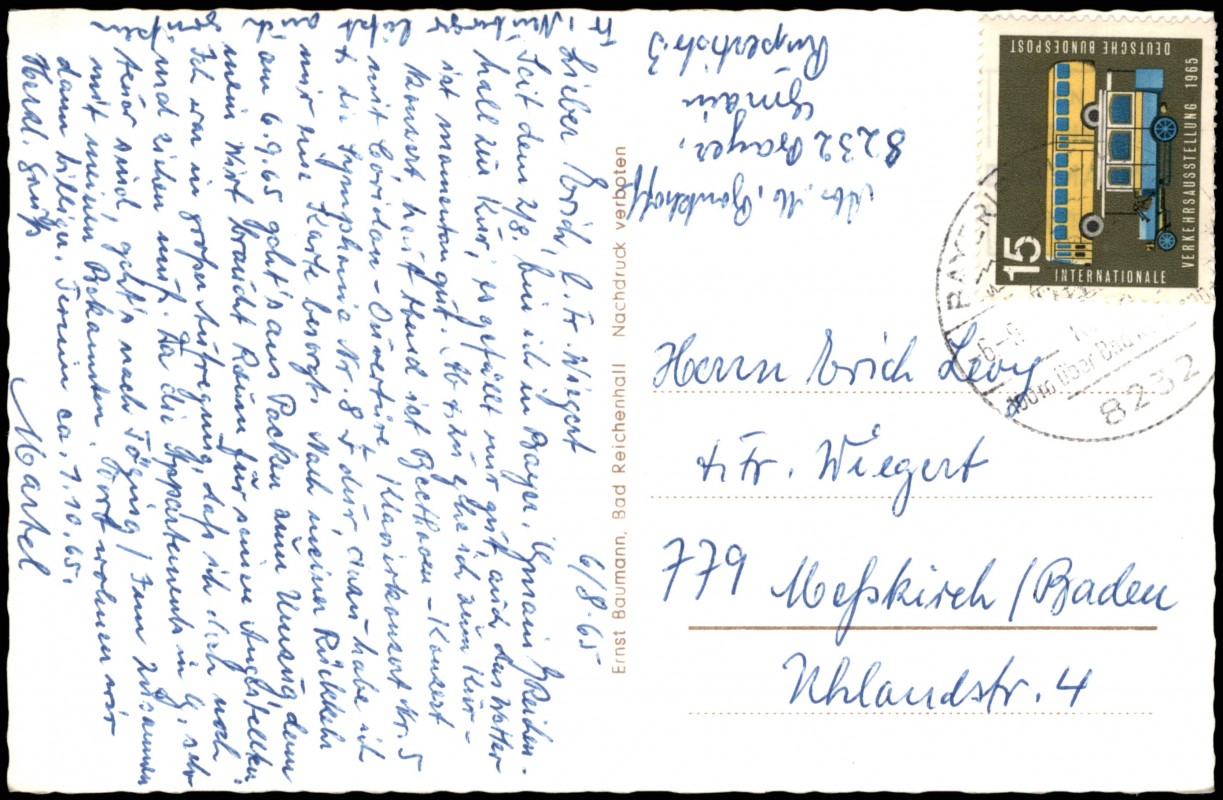 6/8.65
Lieber Erich, l. Fr. Wiegert
Seit dem 2/8. bin ich in Bayer. Gmain b/Reichen-
hall zur Kur, es gefällt mir gut, auch das Wetter
ist momentan gut. Ab 4 zu gehe ich zum Kur-
konzert, heut Abend ist Beethoven-Konzert
mit Coriolan-Ouvertüre, Klavierkonzert Nr. 5
+ die Symphonie Nr. 8 F dur,
mir eine Karte besorgt. Nach meiner Rückkehr
am 6.9.65 geht's ans Packen zum Umzug, denn
mein Wirt braucht Raum für seinen Angestellten.
Ich war in großer Aufregung, daß ich doch noch
und ziehen muß. Da die Appartements in G. sehr
teuer sind, geht's nach Töging/Inn zusammen
mit meinen Bekannten. Dort wohnen wir
dann billiger. Termin ca. 1.10.65.
Herzl. Grüße
Martel
Fr.
Abs. M.
8232 Bayer.
Gmain
Rupertistr. 3
Ernst Baumann, Bad Reichenhall Nachdruck verboten
DEUTSCHE BUNDESPOST
15
INTERNATIONALE
VERKEHRSAUSSTELLUNG 1965
8232
Herrn Erich Levy
+ Fr. Wiegert
779 Meßkirch/Baden
Uhlandstr. 4